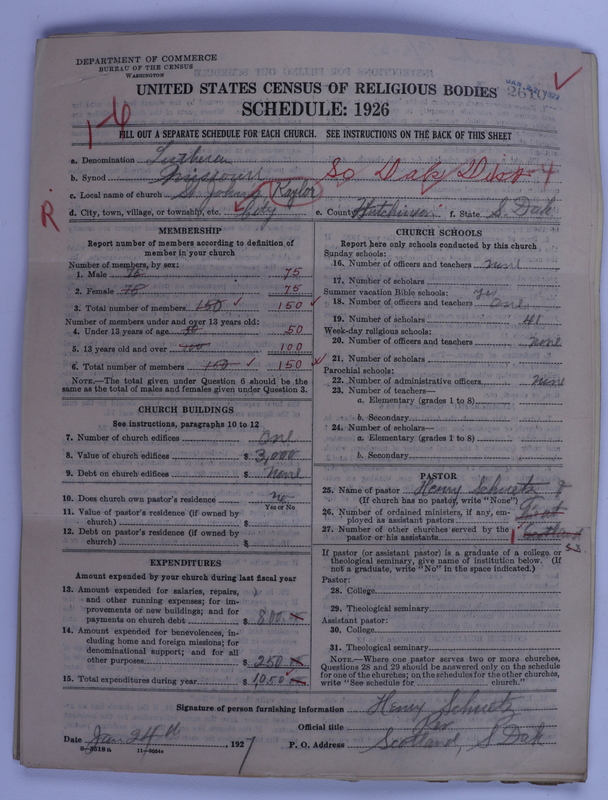 DEPARTMENT OF COMMERCE
BUREAU OF THE CENSUS
WASHINGTON
UNITED STATES CENSUS OF RELIGIOUS BODIES
SCHEDULE: 1926
1-6
FILL OUT A SEPARATE SCHEDULE FOR EACH CHURCH. SEE INSTRUCTIONS ON THE BACK OF THIS SHEET
a. Denomination Lutheran
b. Synod Missouri So Dak Dist 4
c. Local name of church St Johns Kaylor
d. City, town, village, or township, etc. City e. County Hutchinson f. State S. Dak
R.
MEMBERSHIP
Report number of members according to definition of member in your church
Number of members, by sex:
1. Male 75 75
2. Female 75 75
3. Total number of members 150 150
Number of members under and over 13 years old:
4. Under 13 years of age 50 50
5. 13 years old and over 100 100
6. Total number of members 150 150
NOTE.—The total given under Question 6 should be the same as the total of males and females given under Question 3.
CHURCH BUILDINGS
See instructions, paragraphs 10 to 12
7. Number of church edifices One
8. Value of church edifices $ 3,000
9. Debt on church edifices $ None
10. Does church own pastor's residence no
Yes or No
11. Value of pastor's residence (if owned by church) $
12. Debt on pastor's residence (if owned by church) $
EXPENDITURES
Amount expended by your church during last fiscal year
13. Amount expended for salaries, repairs, and other running expenses; for improvements or new buildings; and for payments on church debt $ 800.
14. Amount expended for benevolences, including home and foreign missions; for denominational support; and for all other purposes $ 250
15. Total expenditures during year $ 1050
CHURCH SCHOOLS
Report here only schools conducted by this church
Sunday schools:
16. Number of officers and teachers none
17. Number of scholars
Summer vacation Bible schools:
18. Number of officers and teachers One
19. Number of scholars 41
Week-day religious schools:
20. Number of officers and teachers none
21. Number of scholars
Parochial schools:
22. Number of administrative officers none
23. Number of teachers—
a. Elementary (grades 1 to 8)
b. Secondary
24. Number of scholars—
a. Elementary (grades 1 to 8)
b. Secondary
PASTOR
25. Name of pastor Henry Schuetz
(If church has no pastor, write "None")
26. Number of ordained ministers, if any, employed as assistant pastors
27. Number of other churches served by the pastor or his assistants 1 Scotland
If pastor (or assistant pastor) is a graduate of a college or theological seminary, give name of institution below. (If not a graduate, write "No" in the space indicated.)
Pastor:
28. College
29. Theological seminary
Assistant pastor:
30. College
31. Theological seminary
NOTE.—Where one pastor serves two or more churches, Questions 28 and 29 should be answered only on the schedule for one of the churches; on the schedules for the other churches, write "See schedule for church."
Signature of person furnishing information Henry Schuetz
Official title Rev
Date Jan 24th, 1927 P. O. Address Scotland, S Dak
8-3518a 11-9054a